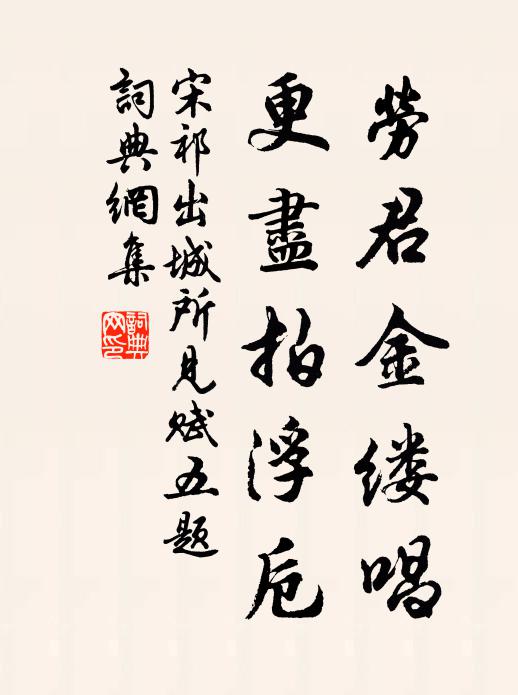 勞君金缕唱
更盡拍浮卮
宋祁出城所見赋五题
詞典網集
詞典网印